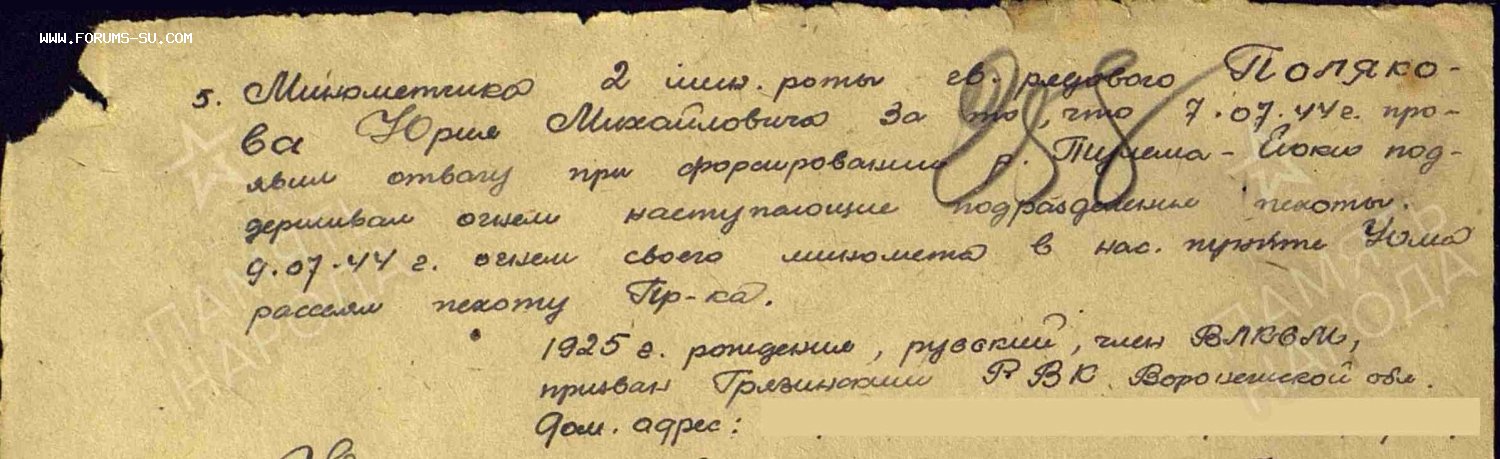 WWW.FORUMS-SU.COM
5. Минометчика 2 мин. роты гв. рядового Поляко-
ва Юрия Михайловича За то, что 7.07.44 г. про-
явил отвагу при форсировании р. -Йоки под-
держивал огнем наступающие подразделенья пехоты.
9.07.44 г. огнем своего миномета в нас. пункте Уома
рассеял пехоту Пр-ка.
1925 г. рождения, русский, член ВЛКСМ,
призван Грязинским РВК Воронежской обл.
Дом. адрес:
ПАМЯТЬ НАРОДА
ПАМЯТЬ НАРОДА